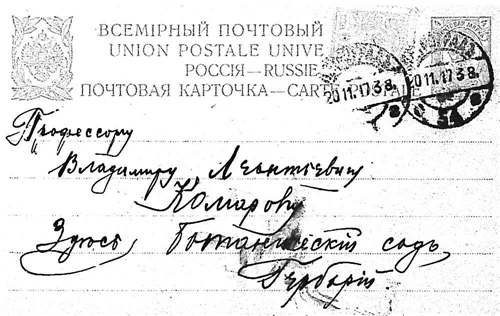 ВСЕМІРНЫЙ ПОЧТОВЫЙ
UNION POSTALE UNIVE
РОССІЯ—RUSSIE
ПОЧТОВАЯ КАРТОЧКА—CART
20 11.17 3 8.
20 11.17 3 8.
Профессору
Владимиру Леонтіевичу
Комарову
Здѣсь Ботаническій садъ
Гербарій.